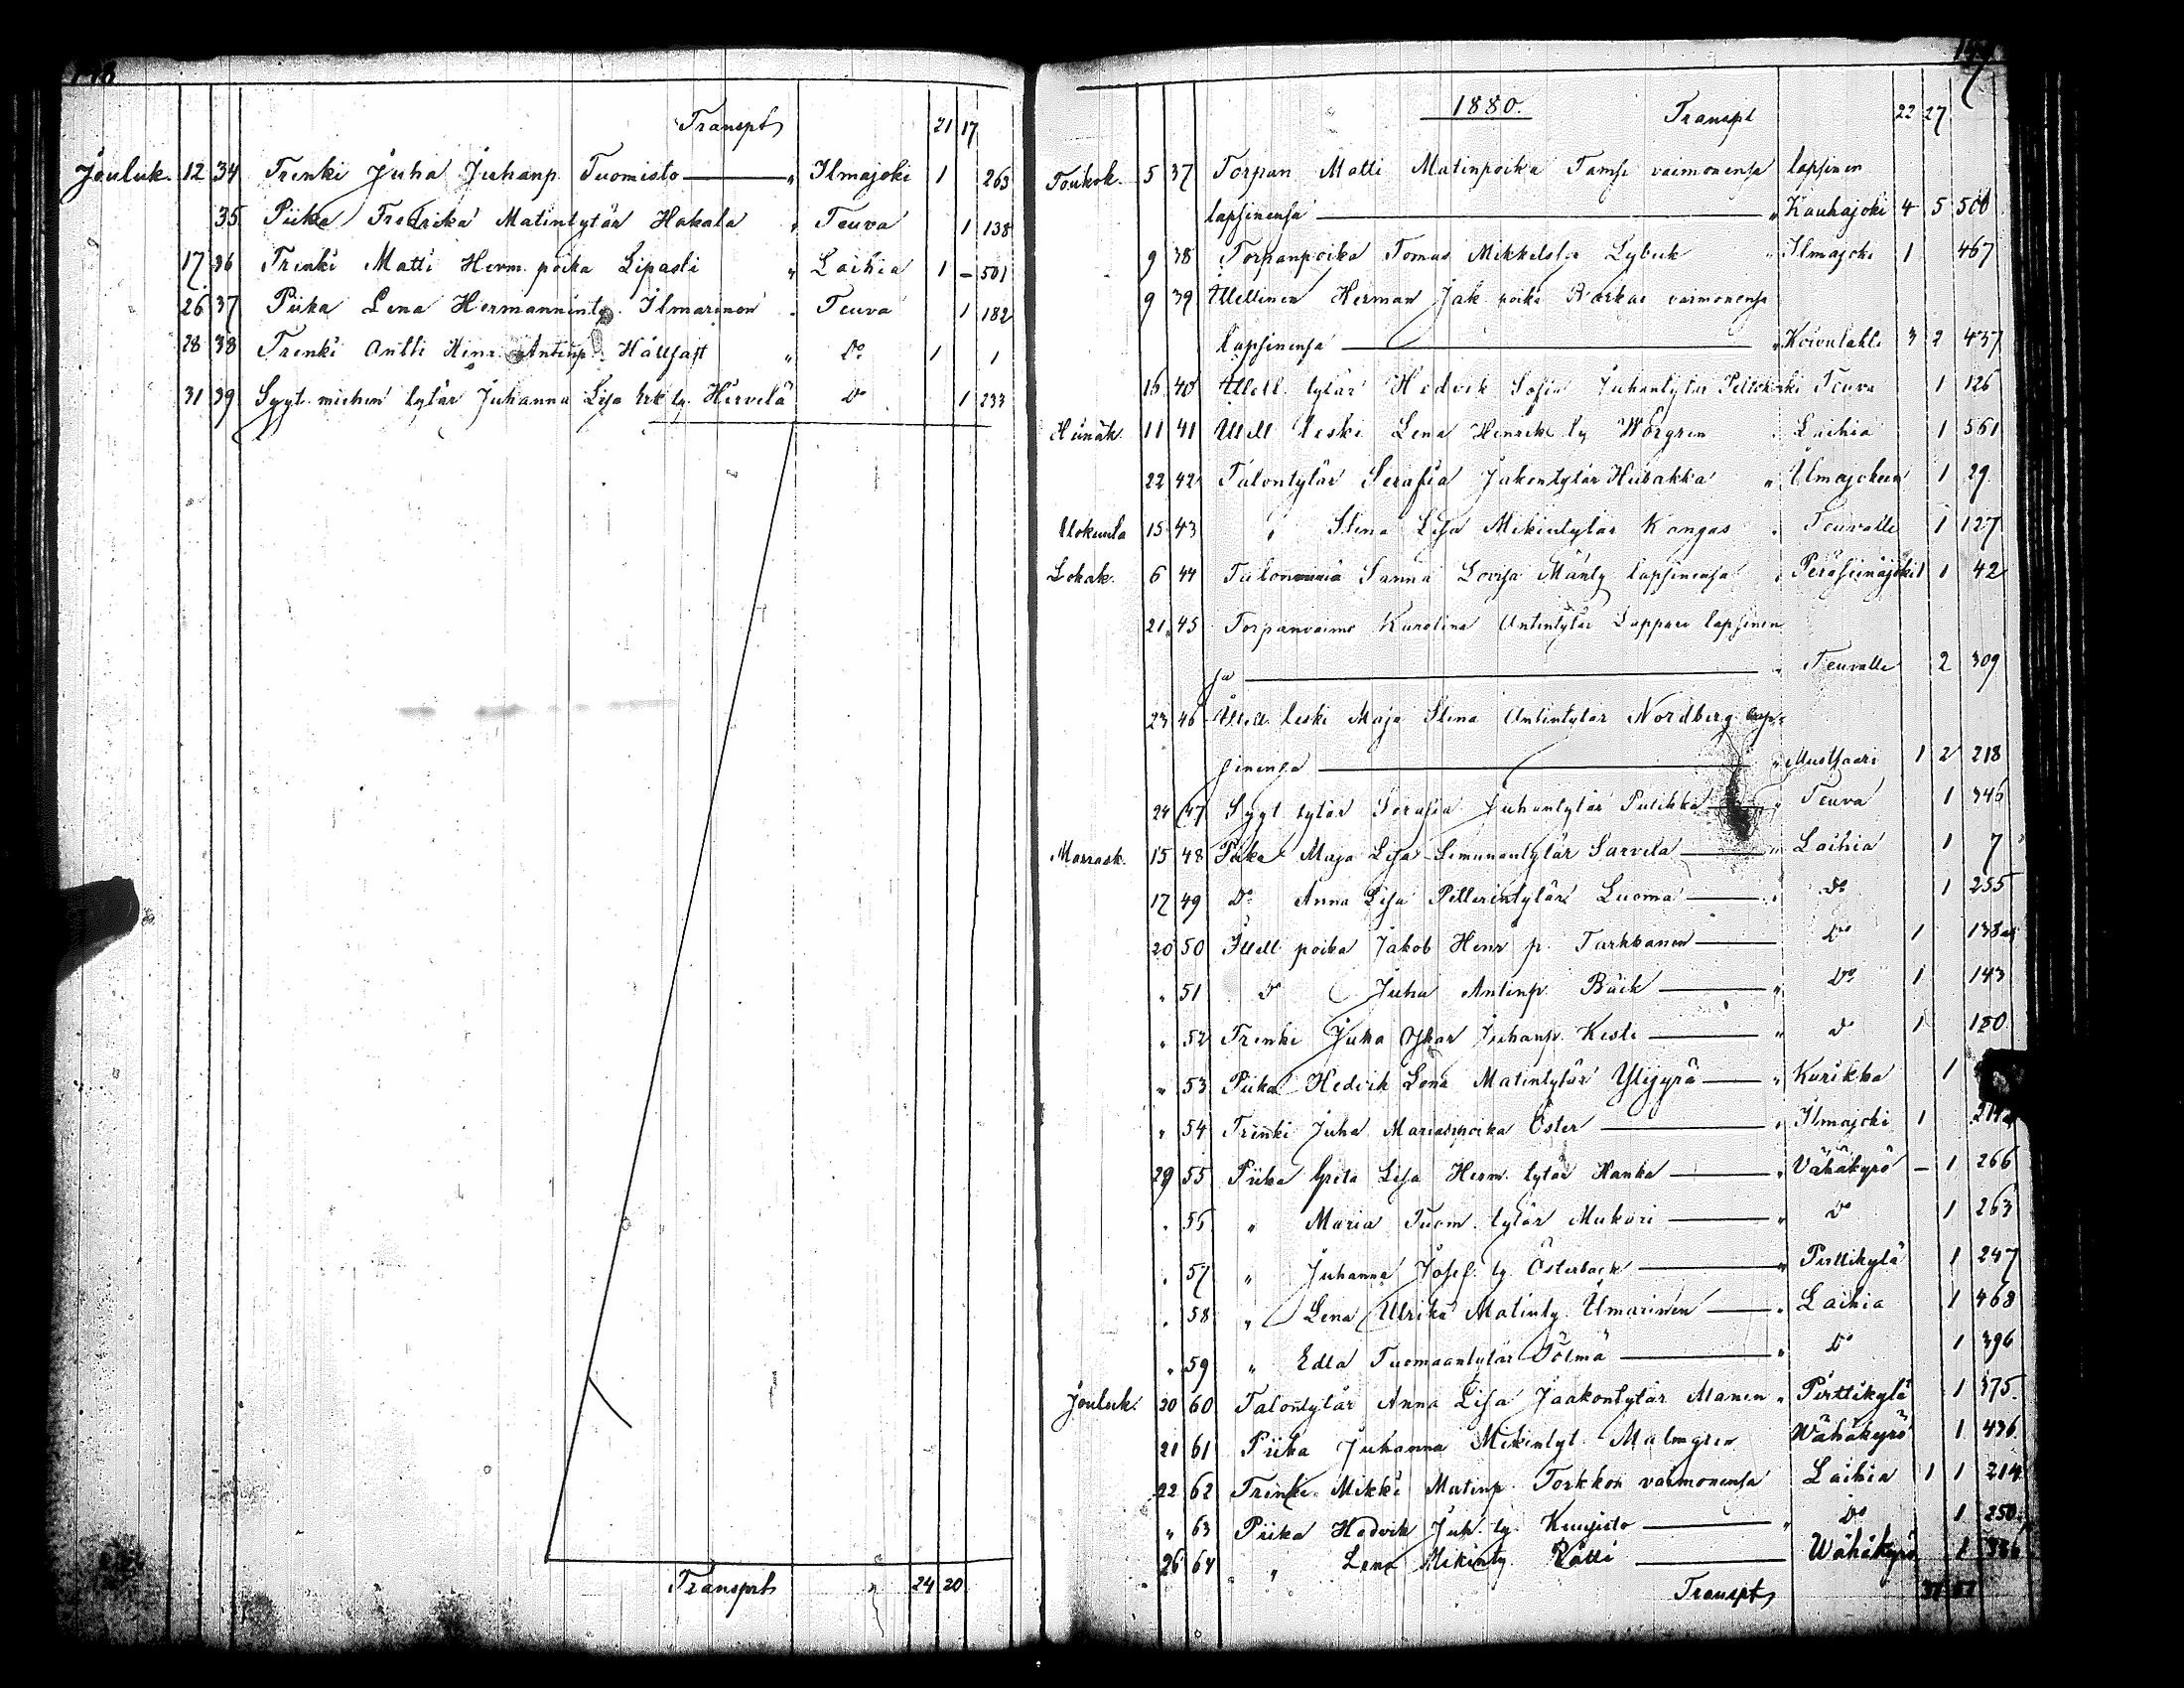 Transpt 21 17
Jouluk. 12 34 Trenki Juha Juhanp. Tuomisto " Ilmajoki 1 263
35 Piika Fredrika Matintytär Hakala " Teuva 1 138
17 36 Trenki Matti Herm. poika Lipasti " Laihia 1 – 501
26 37 Piika Lena Hermanninty. Ilmarinen " Teuva 1 182
28 38 Trenki Antti Hinr. Antinp. Hällfast " Do 1 1
31 39 Sytt. tytär Juhanna Lisa ty. Hirvelä Do 1 233
Transprt 24 20
147
1880. Transpt 22 27
Toukok. 5 37 Torpan Matti Matinpoika vaimonensa lapsinen
lapsinensa " Kauhajoki 4 5 500
9 38 Torpanpoika Tomas Lybeck " Ilmajoki 1 467
9 39 Itellinen Herman Jak. poika vaimonensa
lapsinensa " Koivulahti 3 2 437
16 40 Itell. tytär Hedvik Sofia Juhantytär Teuva 1 126
Heinäk. 11 41 Itell leski Lena Henrik. ty Wörgren " Laihia 1 561
22 42 Talontytär Serafia Jakontytär Hiirakka " Ilmajokeen 1 29
Elokuula 15 43 " Stena Lisa Mikintytär Kangas " Teuvalle 1 127
Lokak. 6 44 Sanna Lovisa Mänty lapsinensa " Peräseinäjoki 1 1 42
21 45 Torpanvaimo Karolina Antintytär lapsinen
sa " Teuvalle 2 309
23 46 Itell. leski Maja Stina Antintytär Nordberg lap-
sinensa " Mustsaari 1 2 218
24 47 Sytt tytär Serafia Juhantytär Pulikka " Teuva 1 346
Marrask. 15 48 Piika Maja Lisa Simunantytär Sarvela " Laihia 1 7
17 49 Do Anna Lisa Luoma " Do 1 255
20 50 Itell poika Jakob Henr p. Do 1 138
" 51 Do Juha Antinp. Bäck " Do 1 143
" 52 Trenki Juha Oskar Juhanp. Kesti " Do 1 180
" 53 Piika Hedvik Lena Matintytär Ylijyrä " Kurikka 1
" 54 Trenki Juha Mariaanpoika Öster " Ilmajoki 1
29 55 Piika Greta Lisa Herm. tytär Hanka " Vähäkyrö – 1 266
" 56 " Maria Tuom. tytär Mukari " Do 1 263
" 57 " Juhanna Josef. ty. Österback " Pirttikylä 1 247
" 58 " Lena Ulrika Matinty. Ilmarinen " Laihia 1 468
" 59 " Edla Tuomaantytär Tölmä " Do 1 396
Jouluk. 20 60 Talontytär Anna Lisa Jaakontytär Alanen " Pirttikylä 1 375
21 61 Piika Juhanna Mikintyt. Malmgren Wähäkyrö 1 436
22 62 Trenki Mikki Matinp. Torkkon vaimonensa Laihia 1 1 214
" 63 Piika Hedvik Juh. ty. " Do 1 250
26 64 " Lena Mikinty. Rätti Wähäkyrö 1
Transpt